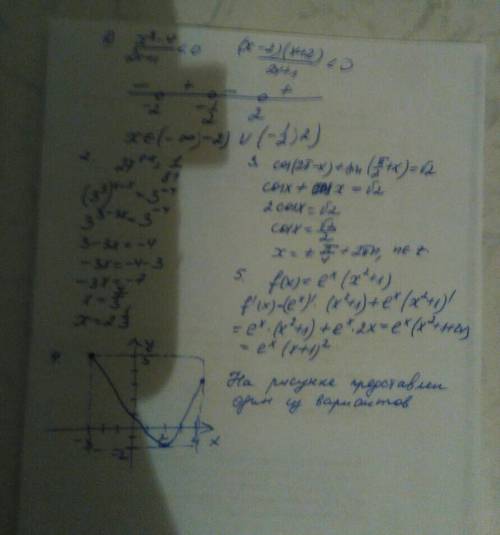 1) x²-4/2x+1 < 0 (x-2)(x+2)/2x+1 < 0
- + - +
-2 -1/2 2
x∈(-∞;-2) ∪ (-1/2;2)
2.
(3³)
3^3-3x = 3^-4
3-3x=-4
-3x=-4-3
-3x=-7
3. cos(2π-x)+sin(π/2+x)=√2
cosx+cosx=√2
2cosx=√2
cosx=√2/2
x=±π/4+2πn, n∈z
5. f(x)=e^x(x²+1)
f'(x)=(e^x)'·(x²+1)+e^x(x²+1)'
=e^x·(x²+1)+e^x·2x=e^x(x²+1+2x)
=e^x(x+1)²
4
5
-2
x
На рисунке представлен
один из вариантов